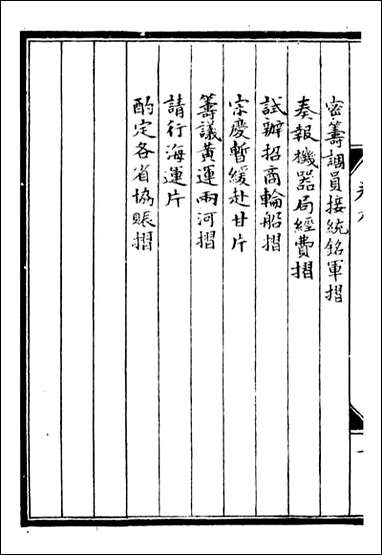 密籌調員接統銘軍摺
奏報機器局經費摺
試辦招商輪船摺
宋慶暫緩赴甘片
籌議黃運兩河摺
請行海運片
酌定各省協賑摺